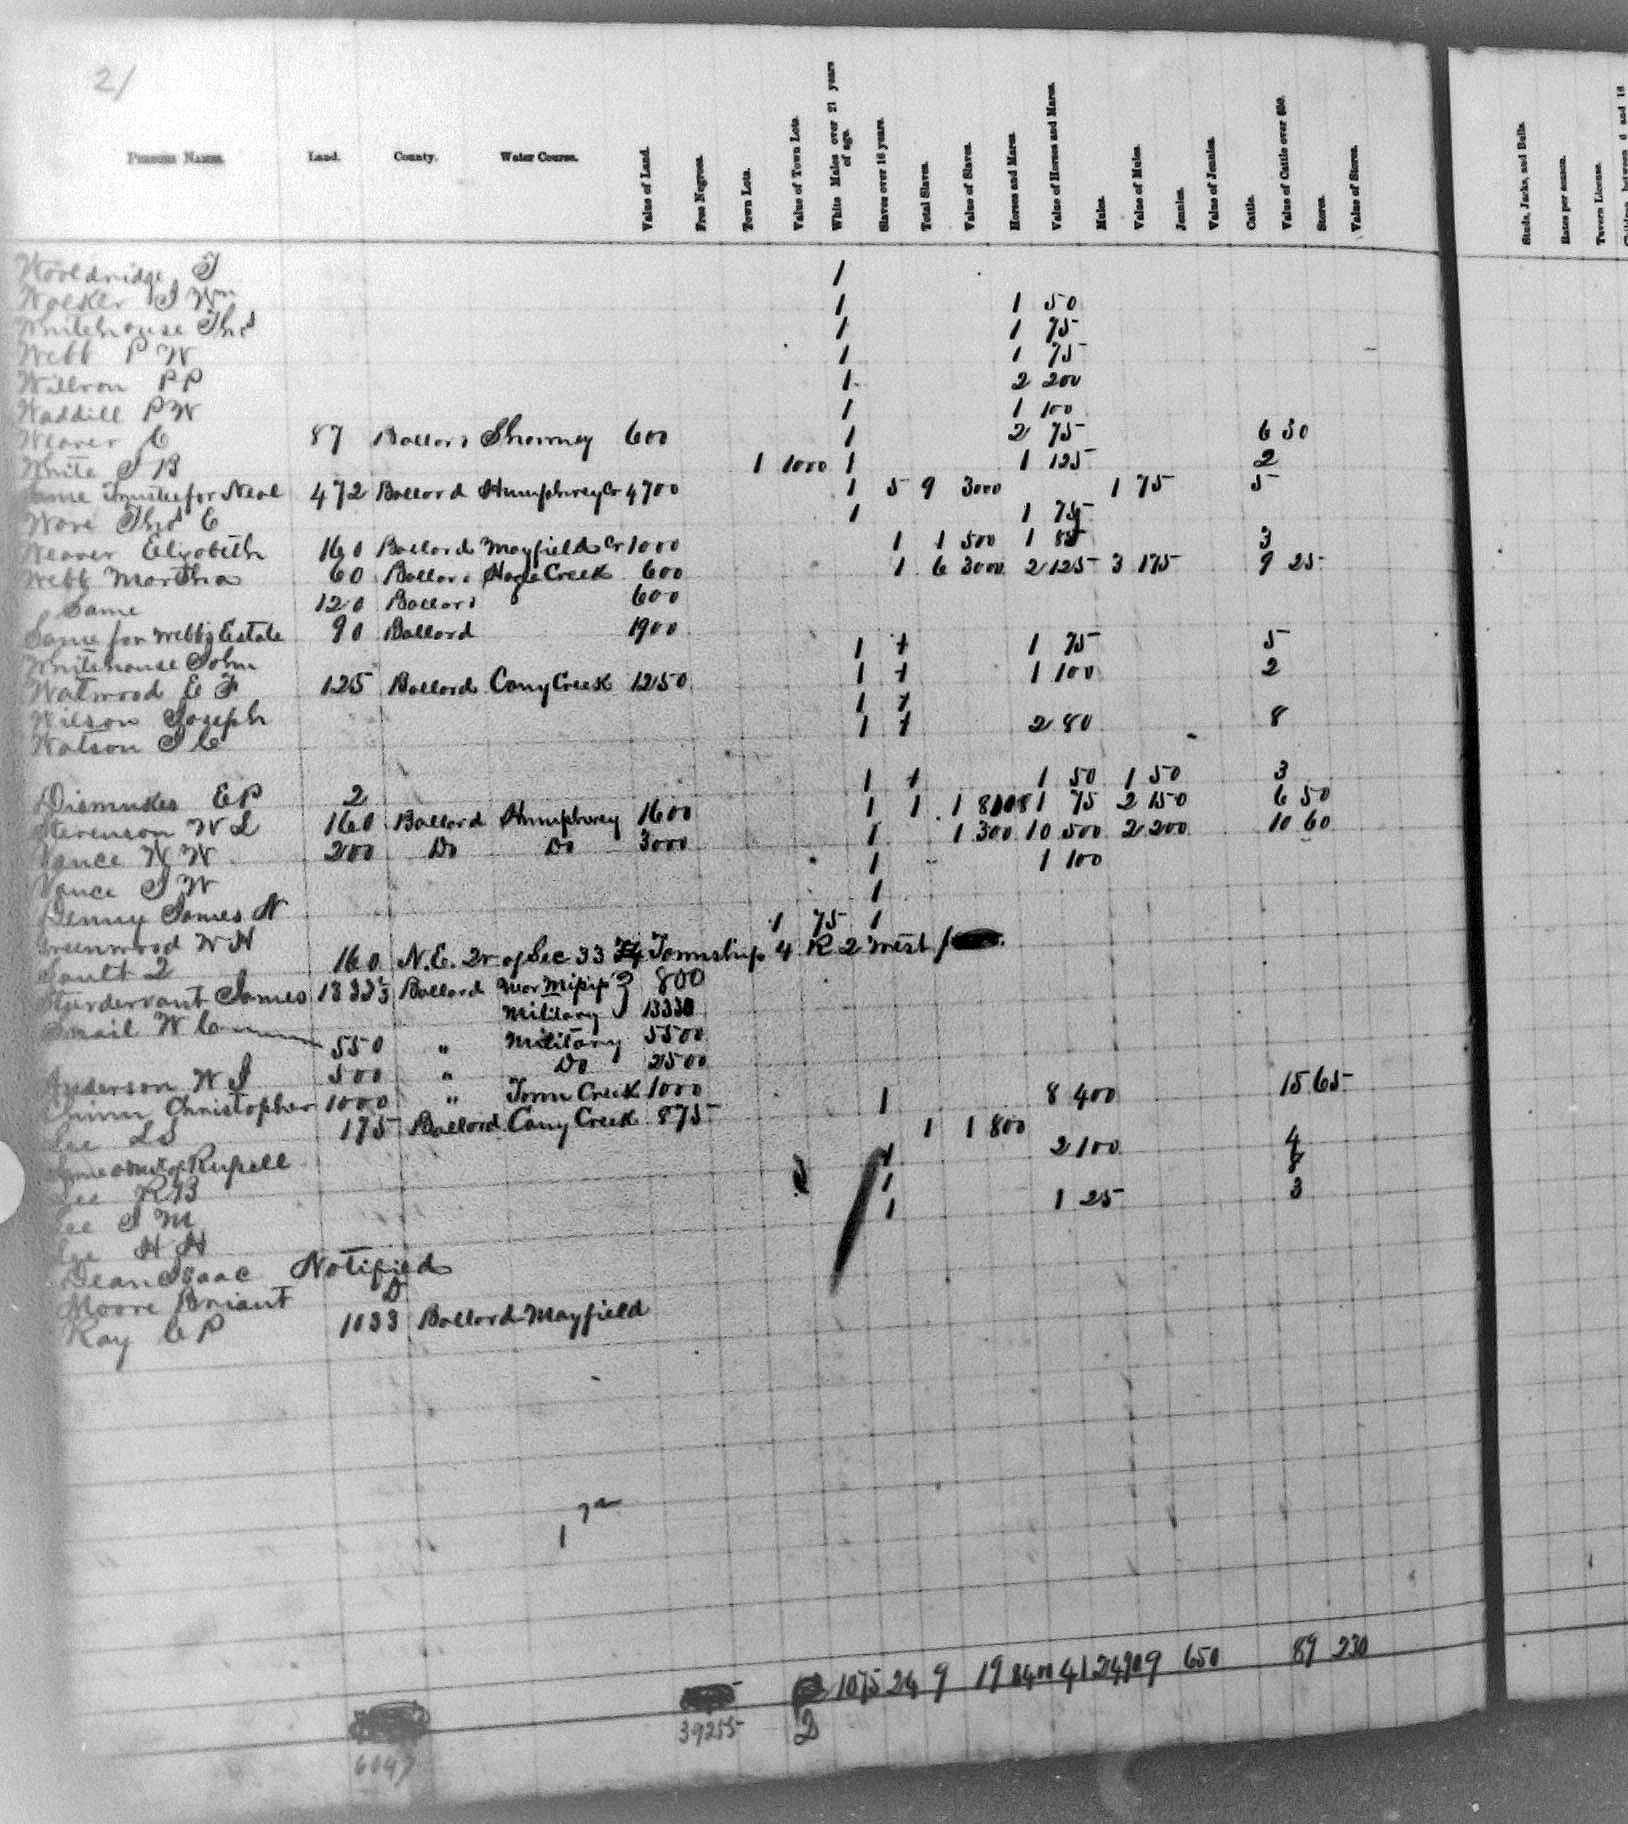 21
Persons Names. Land. County. Water Course. Value of Land. Free Negroes. Town Lots. Value of Town Lots. White Males over 21 years of age. Slaves over 16 years. Total Slaves. Value of Slaves. Horses and Mares. Value of Horses and Mares. Mules. Value of Mules. Jennies. Value of Jennies. Cattle. Value of Cattle over $50. Stores. Value of Stores. Studs, Jacks, and Bulls. Rates per season. Tavern License.
Wooldridge J 1
Walker J Wm 1 1 50
Whitehouse Thos 1 1 75
Webb P W 1 1 75
Willson P P 1 2 200
Waddill P W 1 1 100
Weaver C 87 Ballard Shawney 600 1 2 75 6 30
White J B 1 1000 1 1 125 2
Same Trustee for Neal 472 Ballard Humphrey Cr 4700 1 5 9 3000 1 75 5
Ware Thos E 1 1 75
Weaver Elizabeth 160 Ballard Mayfield Cr 1000 1 1 500 1 3
Webb Martha 60 Ballard Creek 600 1 6 3000 2 125 3 175 9 25
Same 120 Ballard 600
Same for Webbs Estate 90 Ballard 1900
Whitehouse John 1 1 1 75 5
Watwood E F 125 Ballard Cany Creek 1250 1 1 1 100 2
Wilson Joseph 1 1
Watson J C 1 1 2 80 8
Dismukes E P 2 1 1 1 50 1 50 3
Stevenson W L 160 Ballard Humphrey 1600 1 1 1 1 75 2 150 6 50
Vance W W 200 Do Do 3000 1 1 300 10 500 2 200 10 60
Vance J W 1 1 100
Denny James N 1
Greenwood W H 1 75 1
Sault 2 160 N.E. 2r of Sec 33 Township 4 R 2 West
Sturdervant James 1333⅓ Ballard Near Mipipi 800
Military 13330
Smail W C 550 " Military 5500
500 " Do 2500
Anderson W J 1000 " Torm Creek 1000 1 8 400 15 65
Chinn Christopher 175 Ballard Cany Creek 875 1 1 800
Lee L S 1 2 100 4
Same Rupell 8
Lee R B 1
Lee J M 1 1 25 3
Lee H H
Dean Isaac Notified
Moore Briant D
Ray C P 1033 Ballard Mayfield
1075 24 9 19 8400 41 2490 9 650 89 230
6047 39255 2